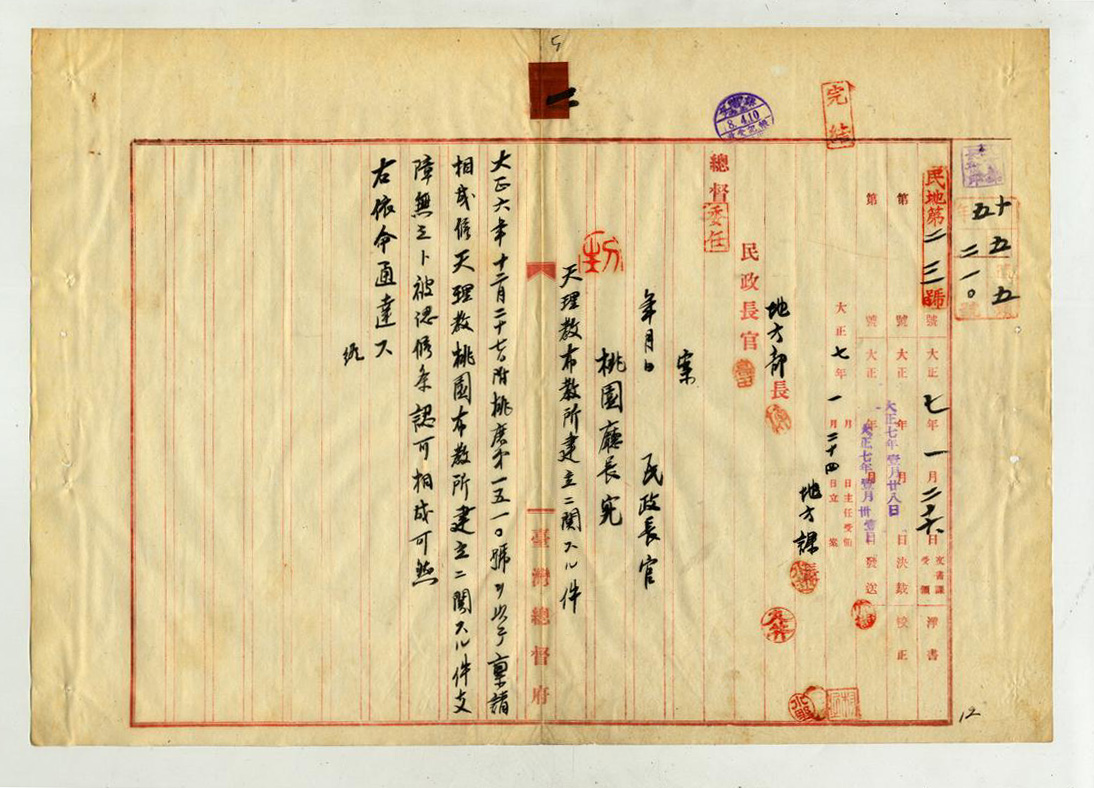 完結
8.4.10
民地第二三號
十五
五五
二一〇
號 大正七年一月二十六日 文書課受領 淨書
第 號 大正 年 月 日決裁 校正
大正七年壹月廿八日
第 號 大正 年 月 日 發送
大正七年壹月卅壹日
月 日主任受領
大正七年一月二十四日立案
地方課
地方部長
民政長官
總督
委任
案
年月日 民政長官
桃園廳長宛
天理教布教所建立ニ關スル件
臺灣總督府
大正六年十二月二十七日附桃庶第一五一〇號ヲ以テ稟請
相成候天理教桃園布教所建立ニ關スル件支
障無之ト被認候条認可相成可然
右依命通達ス
12